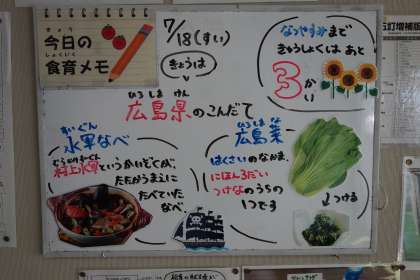 きょう
今日の
しょくいく
食育メモ
7/18(すい)
きょうは
なつやすみまで
きゅうしょくは あと
3かい
ひろしま けん
広島県のこんだて
すいぐん
水軍なべ
村上水軍というかいぞくが、
たたかうまえに
たべていた
なべ
ひろしま な
広島菜
はくさいのなかま。
にほん3だい
つけなのうちの
1つです
つける